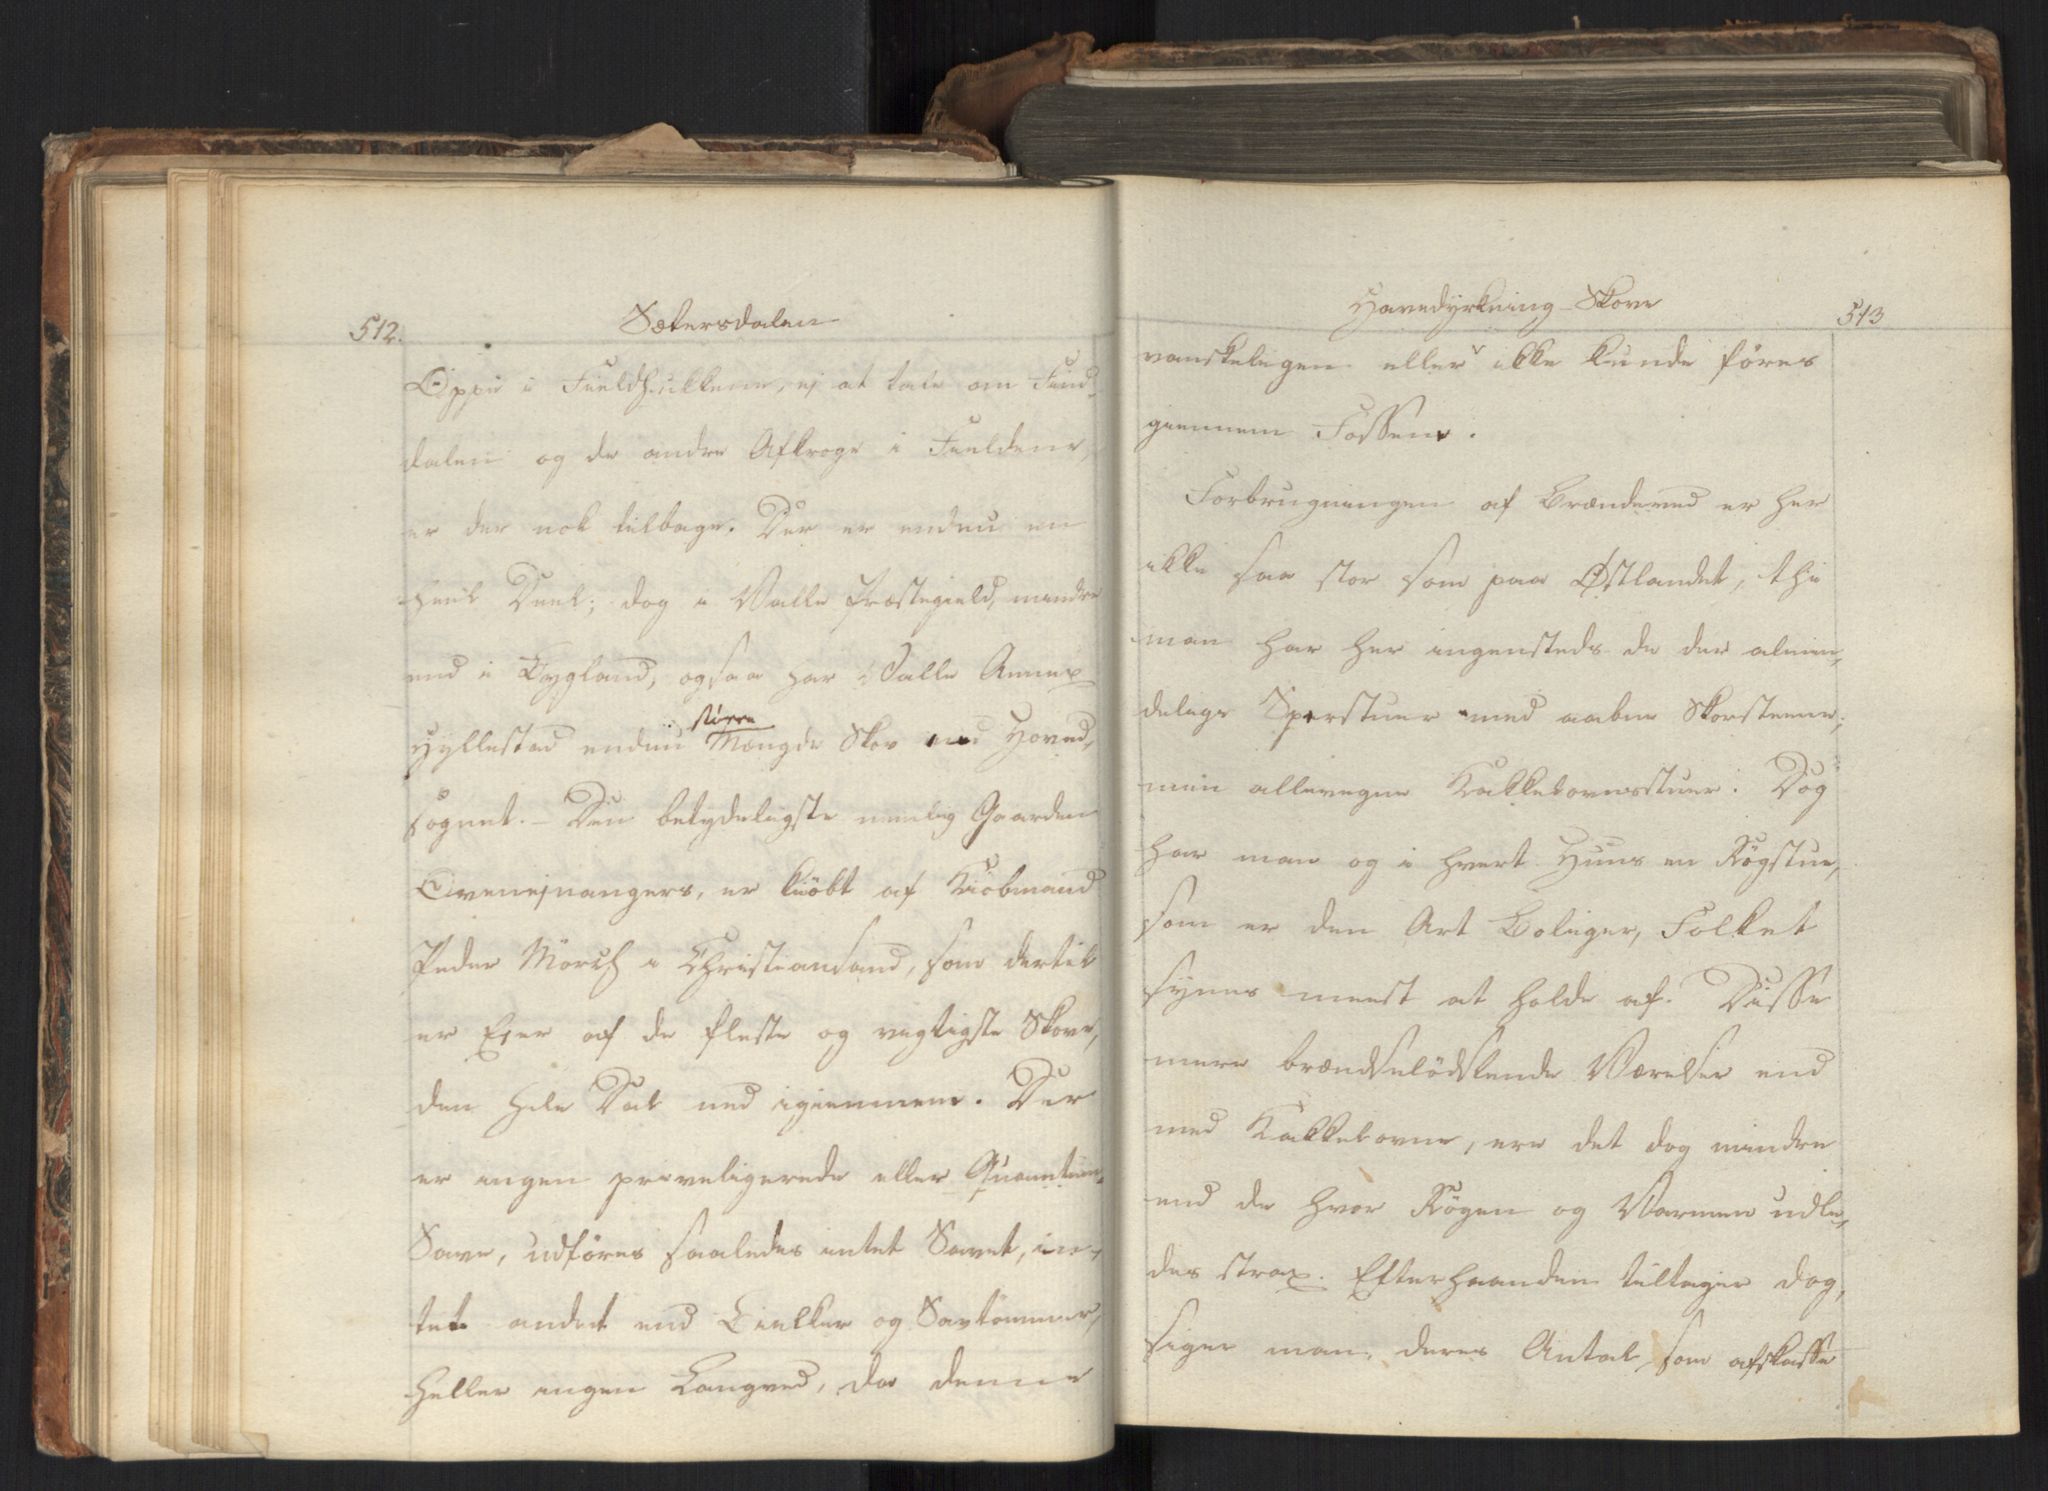 512.
Sætersdalen
Oppe i Fieldhulkene, ej at tale om Fin-
dalen og de andre Afkroge i Fieldene,
er der nok tilbage. Der er endnu en
heel Deel; dog i Valle Præstegield, mindre
end i Bygland, ogsaa har Valle Annex
Hyllestad endnu større Mængde Skov end Hoved-
sognet. – Den betydeligste nemlig Gaarden
er kiöbt af Kiöbmand
Peder Mörch i Christiansand, som dertil
er Ejer af de fleste og vigtigste Skove,
den hele Dal ned igiennem. Der
er ingen priveligerede eller Quantum-
Save, udföres saaledes intet Savet, in-
tet andet end Bielker og Savtömmer,
heller ingen Langved, da denne
Havedyrkning – Skove
513
vanskeligen eller ikke kunde föres
giennem Fossene.
Forbrugningen af Brændeved er her
ikke saa stor som paa Østlandet, thi
man har her ingensteds de der almin-
delige Sperstuer med aabne Skorstene;
men allevegne Kakkelovnsstuer. Dog
har man og i hvert Huus en Rögstue,
som er den Art Boliger, Folket
synes meest at holde af. Disse
mere brændselödslende Værelser end
med Kakkelovne, ere det dog mindre
end de hvor Rögen og Varmen udle-
des strax. Efterhaanden tiltager dog,
siger man, deres Antal, som afskaffe